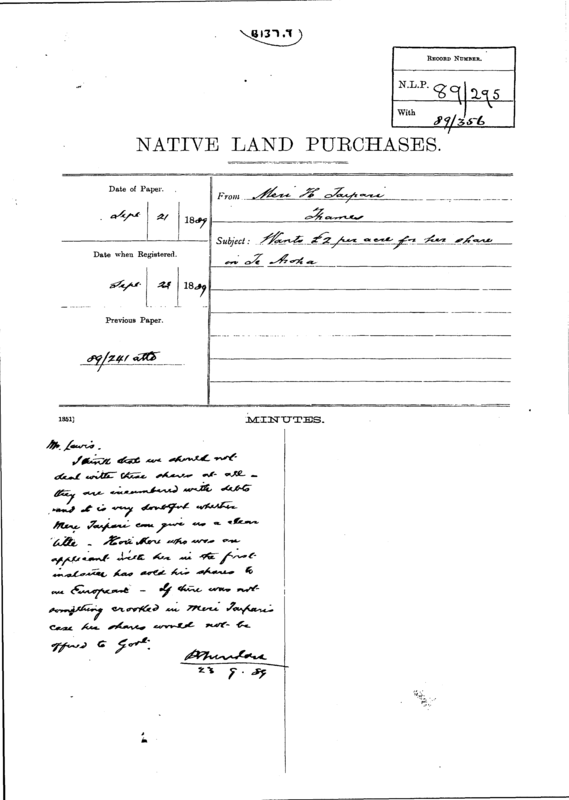 B137.T
RECORD NUMBER.
N.L.P. 89/295
With 89/356
NATIVE LAND PURCHASES.
Date of Paper.
Sept 21 1889
Date when Registered.
Sept 28 1889
Previous Paper.
89/241 atto
From Meri H Taipari
Thames
Subject: Wants £2 per acre for her share
in Te Aroha
1351]
MINUTES.
Mr. Lewis.
I think that we should not
deal with these shares at all –
they are incumbered with debts
and it is very doubtful whether
Meri Taipari can give us a clear
title – Hori More who was an
applicant with her in the first
instance has sold his shares to
an European – If there was not
something crooked in Meri Taipari's
case her shares would not be
offered to Govt.
23 9. 89